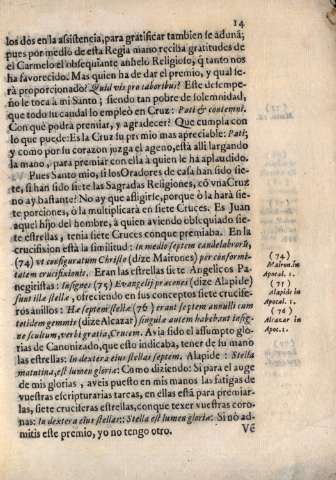 14
los dos en la assistencia, para gratificar tambien se aduna;
pues por medio de esta Regia mano reciba gratitudes de
el Carmelo el obsequiante anhelo Religioso, q̃ tanto nos
ha favorecido. Mas quien ha de dar el premio, y qual se-
rà proporcionado? Quid vis pro laboribus? Este desempe-
ño le toca à mi Santo; siendo tan pobre de solemnidad,
que todo su caudal lo empleò en Cruz: Pati & contemni.
Con què podrà premiar, y agradecer? Que cumpla con
lo que puede: Es la Cruz su premio mas apreciable: Pati;
y como por su corazon juzga el ageno, està alli largando
la mano, para premiar con ella à quien le ha aplaudido.
Pues Santo mio, si los Oradores de casa han sido sie-
te, si han sido siete las Sagradas Religiones, cõ vna Cruz
no ay bastante? No ay que afligirse, porque ò la harà sie-
te porciones, ò la multiplicarà en siete Cruces. Es Juan
aquel hijo del hombre, à quien aviendo obsequiado sie-
te estrellas, tenia siete Cruces conque premiaba. En la
crucifixion està la similitud: In medio septem candelabrorũ,
(74) vt configuratum Christo (dize Mairones) per conformi-
tatem crucifixionis. Eran las estrellas siete Angelicos Pa-
negiristas: Insignes (75) Evangelij præcones (dize Alapide)
sunt illæ stellæ, ofreciendo en sus conceptos siete crucife-
ros anillos: Hæ septem stellæ (76) erant septem annulli cum
totidem gemmis (dize Alcazar) singulæ autem habebant insig-
ne sculptum, verbi gratia, Crucem. Avia sido el assumpto glo-
rias de Canonizado, que esto indicaba, tener de su mano
las estrellas: In dextera eius stellas septem. Alapide: Stella
matutina, est lumen gloriæ: Como diziendo: Si para el auge
de mis glorias, aveis puesto en mis manos las fatigas de
vuestras escripturarias tarcas, en ellas està para premiar-
las, siete cruciferas estrellas, conque texer vuestras coro-
nas: In dextera eius stellas:: Stella est lumen gloriæ: Si nò ad-
mitis este premio, yo no tengo otro.
Ve
(74)
Mairon. in
Apocal. 1.
(75)
Alapide in
Apocal. 1.
(76)
Alcazar in
Apoc. 1.